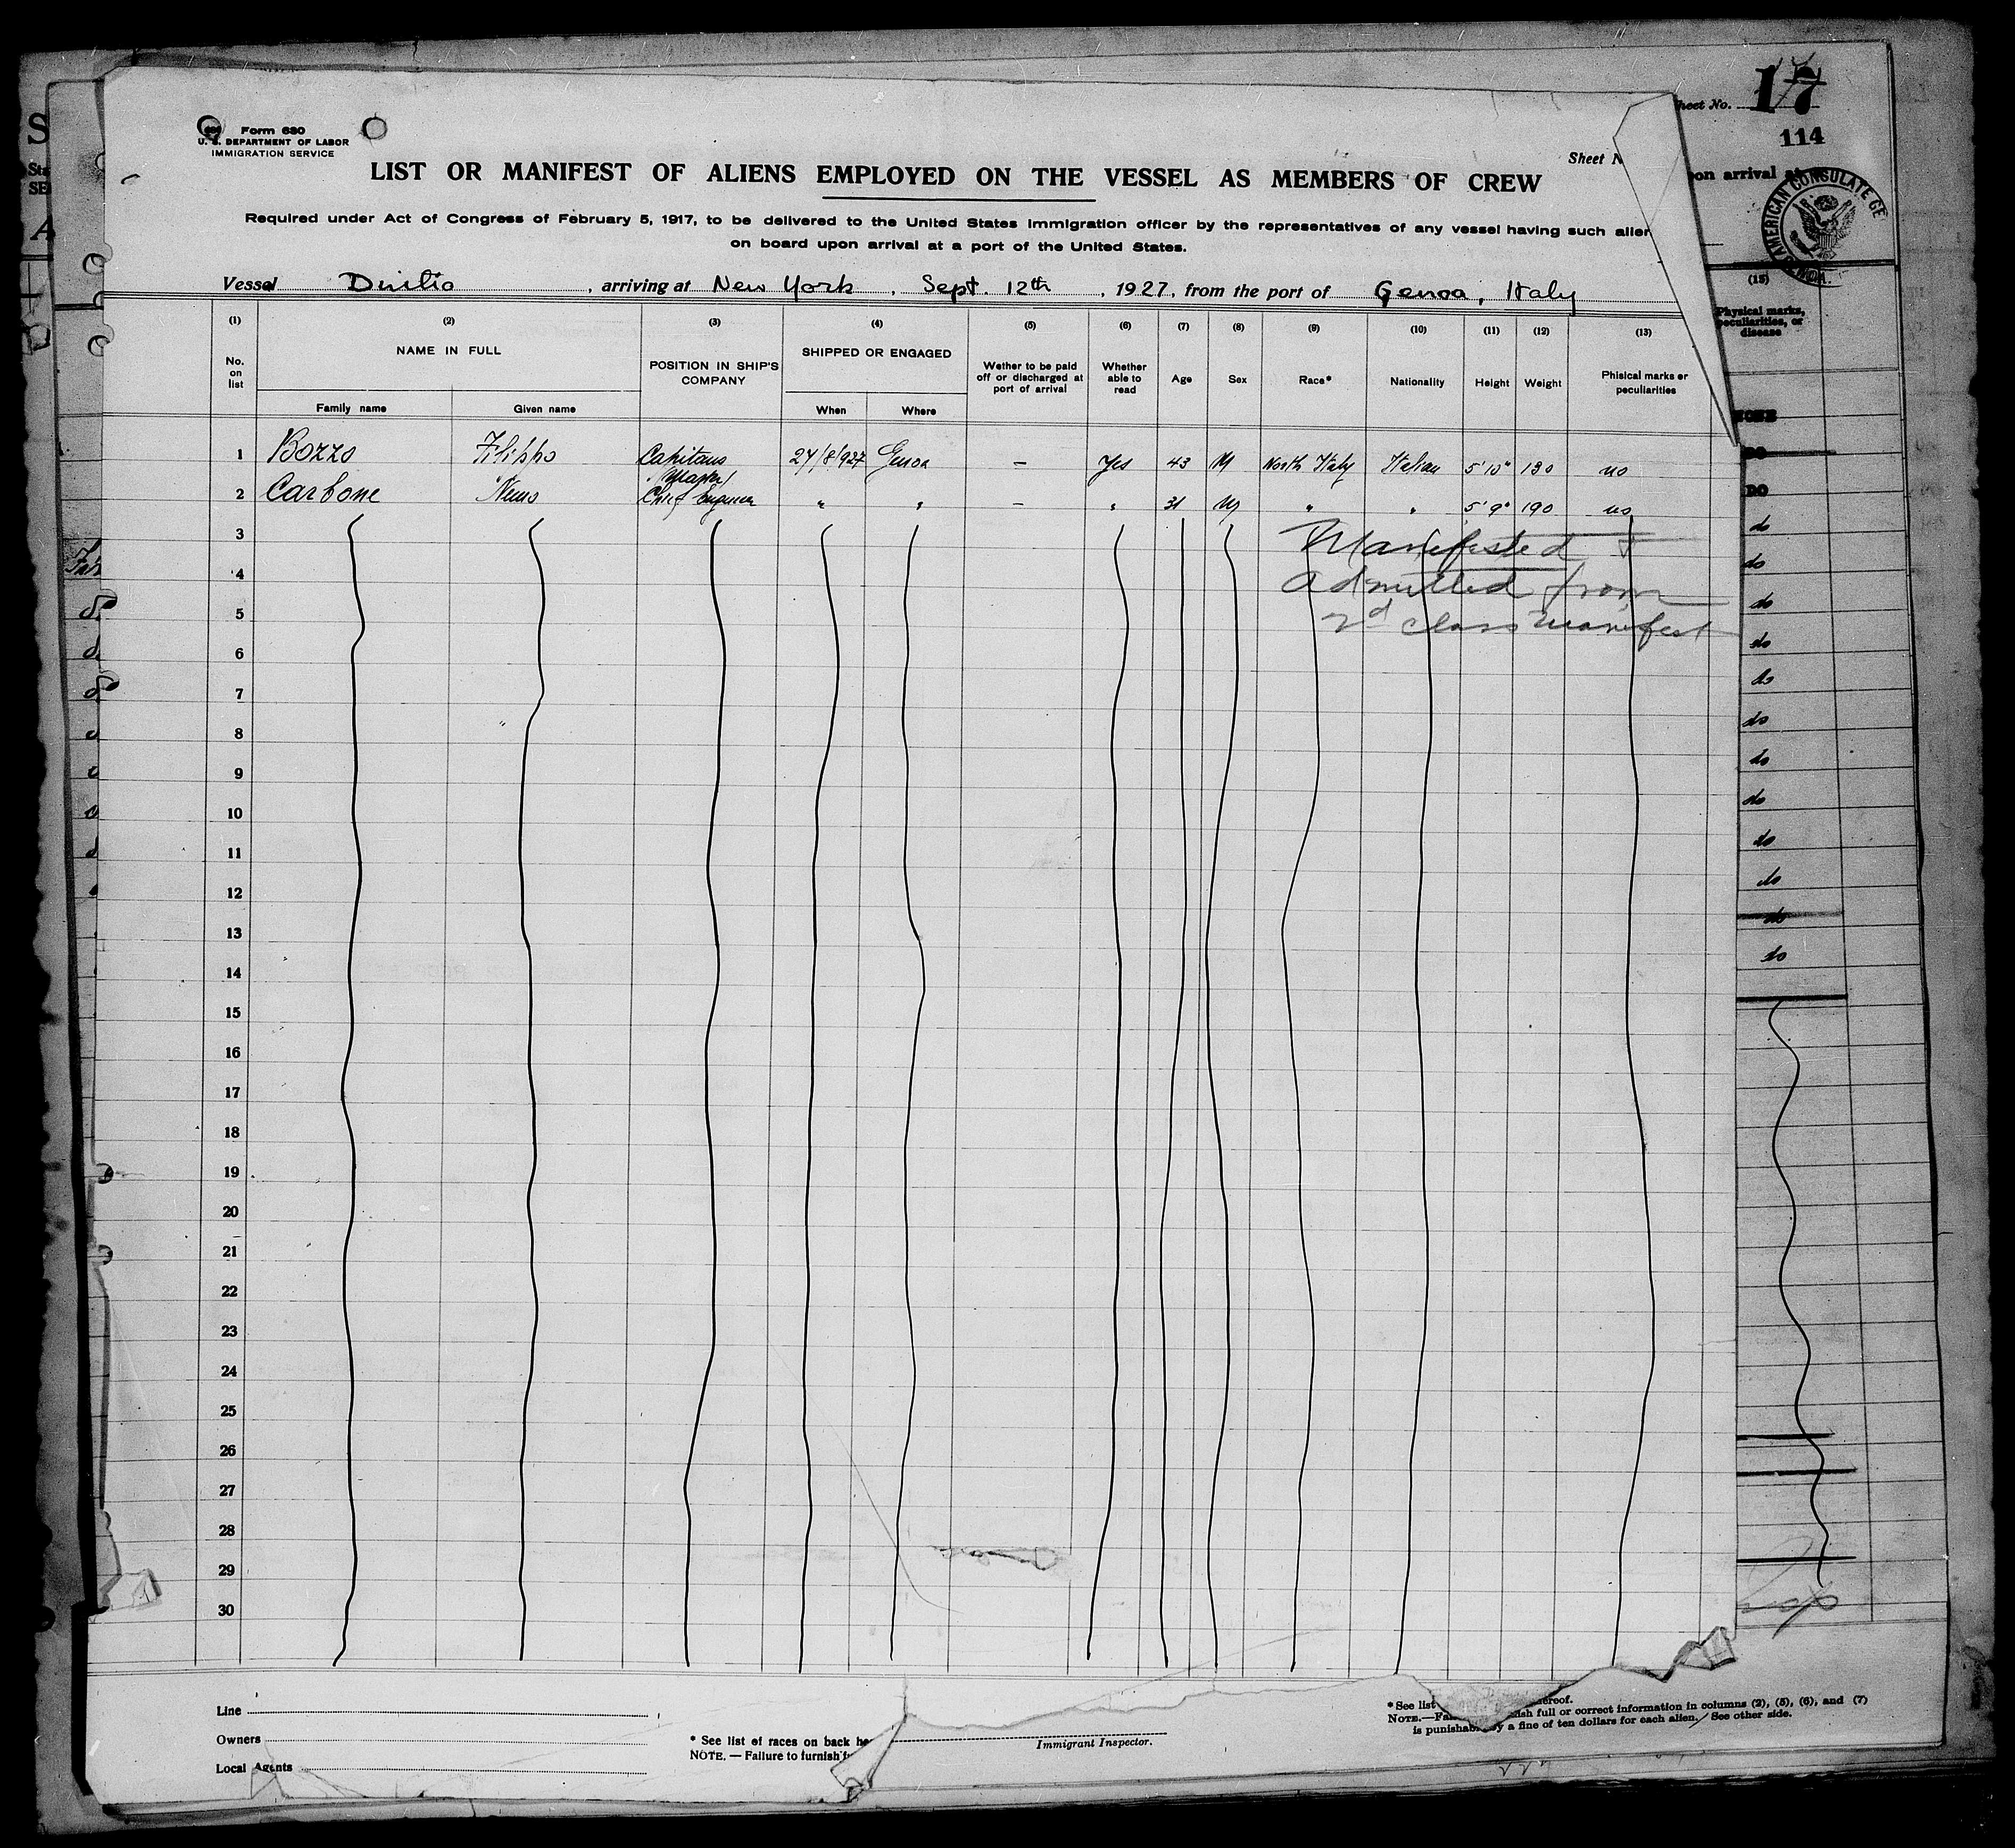 Form 680
U. S. DEPARTMENT OF LABOR
IMMIGRATION SERVICE
Sheet No. 17
114
Sheet N
LIST OR MANIFEST OF ALIENS EMPLOYED ON THE VESSEL AS MEMBERS OF CREW
Required under Act of Congress of February 5, 1917, to be delivered to the United States Immigration officer by the representatives of any vessel having such alien
on board upon arrival at a port of the United States.
upon arrival at
AMERICAN CONSULATE GE
GENOA.
Vessel Duilio, arriving at New York, Sept. 12th, 1927, from the port of Genoa, Italy
(1) (2) (3) (4) (5) (6) (7) (8) (9) (10) (11) (12) (13)
No. on list
NAME IN FULL
Family name
Given name
POSITION IN SHIP'S COMPANY
SHIPPED OR ENGAGED
When
Where
Wether to be paid off or discharged at port of arrival
Whether able to read
Age
Sex
Race*
Nationality
Height
Weight
Phisical marks or peculiarities
(15)
Physical marks, peculiarities, or disease
1 Bozzo Filippo Capitano /Master/ 24/8/927 Genoa – Yes 43 M North Italy Italian 5'10" 130 no
2 Carbone Nemo Chief Engineer " " – " 31 M " " 5'9" 190 no
3
Manifested &
4
admitted from
5
2d class manifest
6
7
8
9
10
11
12
13
14
15
16
17
18
19
20
21
22
23
24
25
26
27
28
29
30
DO
do
do
do
do
do
do
do
do
do
do
do
do
Line
Owners
Local Agents
* See list of races on back he
NOTE. — Failure to furnish f
Immigrant Inspector.
*See list hereof.
NOTE.—Fai nish full or correct information in columns (2), (5), (6), and (7)
is punishable by a fine of ten dollars for each alien. See other side.